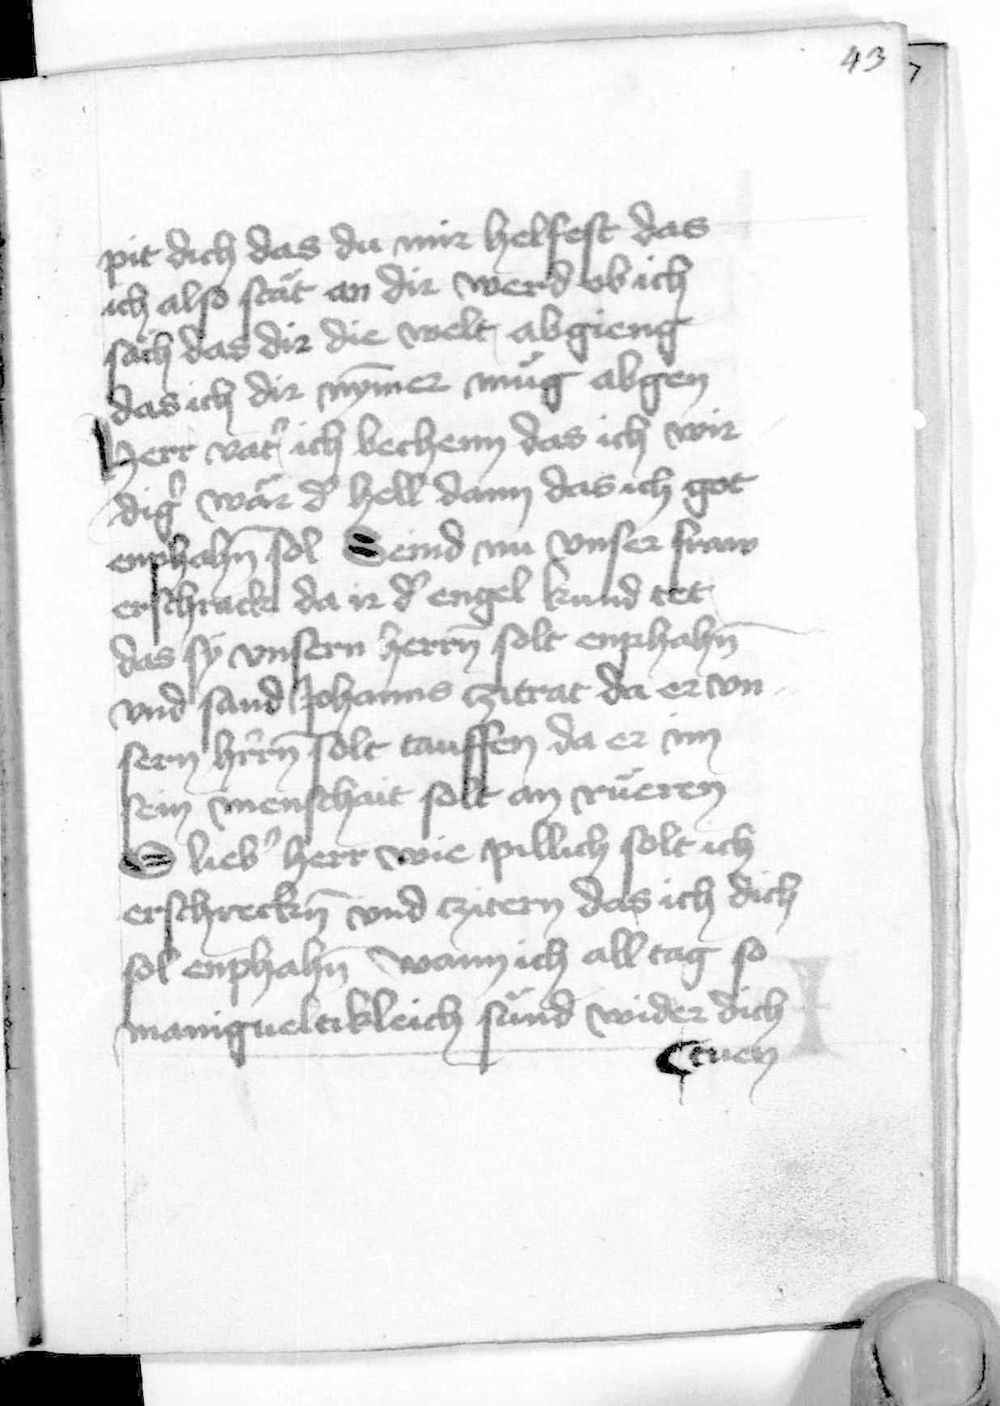 43
pit dich das du mir helfest das
ich also stät an dir werd ob ich
säch das dir die welt abgieng
das ich dir nȳmer müg abgen
Herr vat' ich bechenn das ich wir
dig' wär d' hell dann das ich got
enphahn̄ sol Seind nu vnser fraw
erschrack da ir d' engel kund tet
das sÿ vnsern herrn̄ solt enphahn̄
vnd sand Johanns czitrat da er vn
sern hrrn̄ solt tauffen da er im
sein menschait solt an rüeren
O lieb' herr wie pillich solt ich
erschreckn̄ vnd czitern das ich dich
sol enphahn̄ wann ich all tag so
manigueltikleich sünd wider dich
tuen